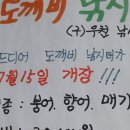 도깨비 낚시
(구)우천 낚
드디어 도깨비 낚시터가
7월 15일 개장!!!
종: 붕어, 향어, 메기